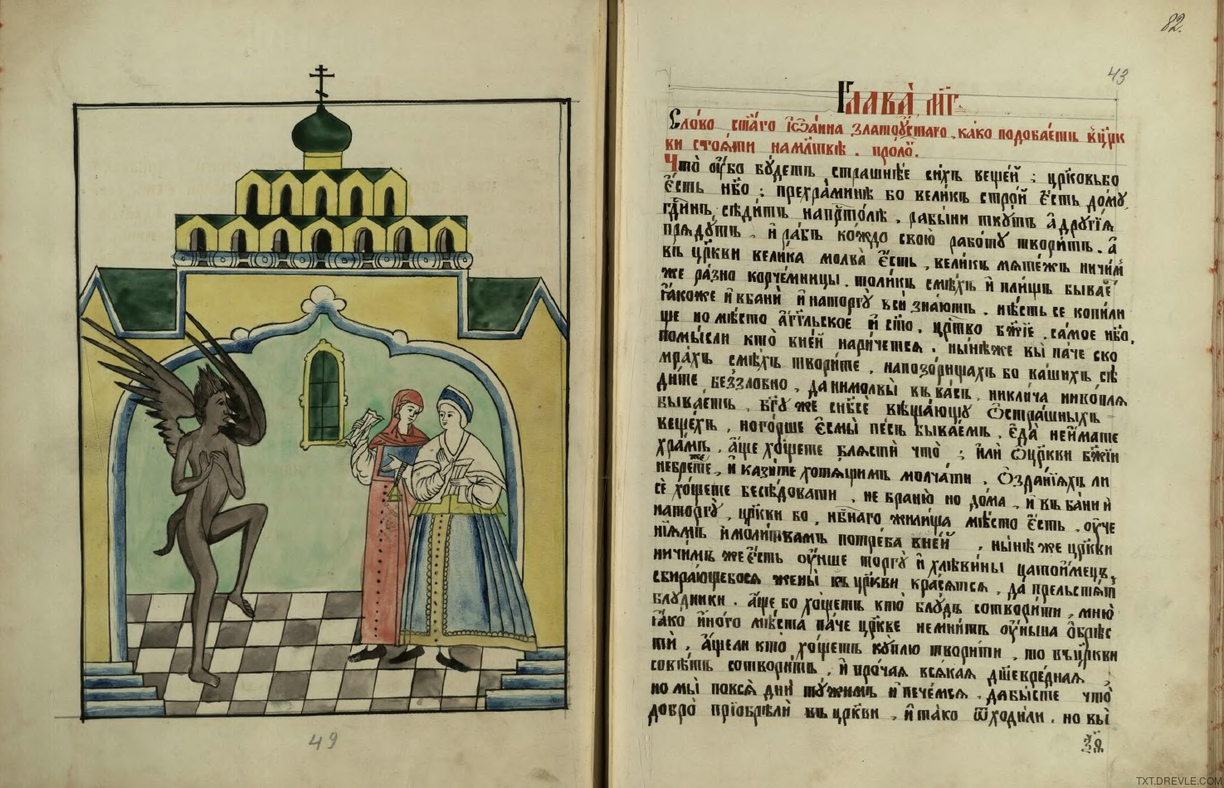 82.
43
Глава̀ м҃г.
Сло́во ст҃а́го і҆ѡа́нна златоꙋ́стаго, ка́ко подоба́етъ в цр҃к
ки стоѧ́ти на мл҃твѣ. проло̑.
Что̀ ᲂу҆́бо бꙋ́детъ страшнѣ́е си́хъ веще́й ; цр҃ко́вь бо
є҆́сть нб҃о ; пре хра́минѣ бо вели́къ стро́й є҆́сть до́мꙋ,
сѣди́тъ на прⷭ҇то́лѣ, рабы́ни ткꙋ́тъ а҆ дрꙋгі́ѧ
прѧдꙋ́тъ, и҆ ра́бъ ко́ждо свою̀ рабо́тꙋ твори́тъ. а҆
въ цр҃кви вели́ка молва̀ є҆́сть, вели́къ мѧте́жъ ничи́м
же ра́зно корче́мницы. толи́къ смѣ́хъ и҆ пли́щъ быва́е
ꙗ҆́коже и҆ в ба́ни и҆ на торгꙋ̀ всѝ зна́ютъ. нѣ́сть се
но мѣ́сто а҆́гг҃льское и҆ ст҃о, цр҃тво бж҃їе, са́мое нб҃о,
помы́сли кто̀ в не́й нарича́етсѧ. ны́нѣ же вы̀ па́че ско
мра́хъ смѣ́хъ твори́те, на позо́рищахъ бо ва́шихъ сѣ
дитѐ беззло́бно, да ни молвы̀ въ ва́съ, ни кли́ча никоелѧ
быва́етъ, бг҃ꙋ же свы́ше вѣща́ющꙋ ѡ҆ стра́шныхъ
ве́щехъ, но го́рше є҆смы̀ пе́съ быва́емъ. є҆да̀ не и҆́мате
хра́мъ, а҆́ще хо́щете блѧ́сти что̀ ; и҆лѝ ѿ цр҃кви бж҃їи
небреге́те, и҆ кази́те хотѧ́щимъ молча́ти. ѡ҆ зда́нїѧхъ ли
сѐ хо́щете бесѣ́довати, не браню̀ но до́ма, и҆ въ ба́ни и҆
на торгꙋ̀, цр҃кви бо, нб҃наго жили́ща мѣ́сто є҆́сть. ᲂу҆че
нїѧ́мъ и҆ моли́твамъ потре́ба в не́й, ны́нѣ же цр҃кви
ничи́мъ же є҆́сть ᲂу҆́нше торгꙋ̀ и҆ хлѣ́вины
сбира́ющебосѧ жены̀ въ цр҃кви красѧ́тсѧ, да прельстѧ́тъ
блꙋ́дники. а҆́ще бо хо́щетъ кто̀ блꙋ́дъ сотвори́ти, мню̀
ꙗ҆́ко и҆но́го мѣ́ста па́че цр҃кве не мни́тъ ᲂу҆́ныша ѡ҆брѣс
ти́, а҆́ще ли кто̀ хо́щетъ кꙋ́плю твори́ти, то въ цр҃кви
совѣ́тъ сотвори́тъ, и҆ про́чаѧ всѧ́каѧ дш҃евре́дная
но мы̀ по всѧ̀ дни̑ тꙋ́жимъ и҆ пече́мсѧ, да бы́сте что̀
добро̀ прїѡбрѣлѝ въ цр҃кви, и҆ та́ко ѿходи́ли, но вы̀
49
TXT.DREVLE.COM